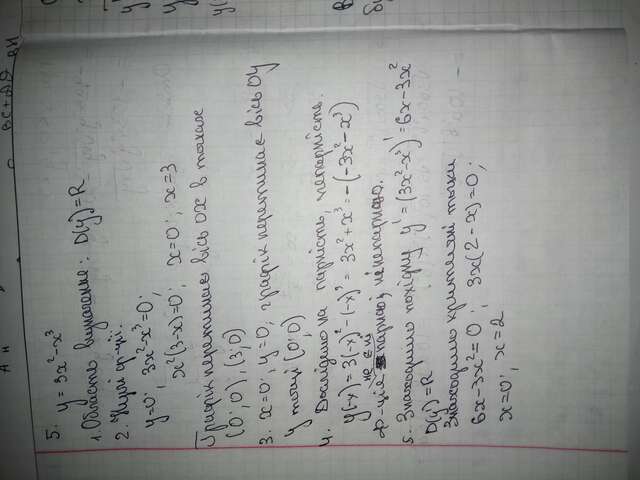 5. y = 3x²-x³
1. Область визначення: D(y)=R
2. Нулі ф-ції:
y=0; 3x²-x³=0;
x²(3-x)=0; x=0; x=3
Графік перетинає вісь OX в точках
(0;0), (3;0)
3. x=0; y=0, графік перетинає вісь OY
у точці (0;0)
4. Дослідимо на парність, непарність.
y(-x)=3(-x)²-(-x)³ = 3x²+x³ = -(-3x²-x³)
ф-ція не є ні парною, ні непарною.
5. Знаходимо похідну y' = (3x²-x³)' = 6x-3x²
D(y')=R
Знаходимо критичні точки
6x-3x²=0; 3x(2-x)=0;
x=0; x=2